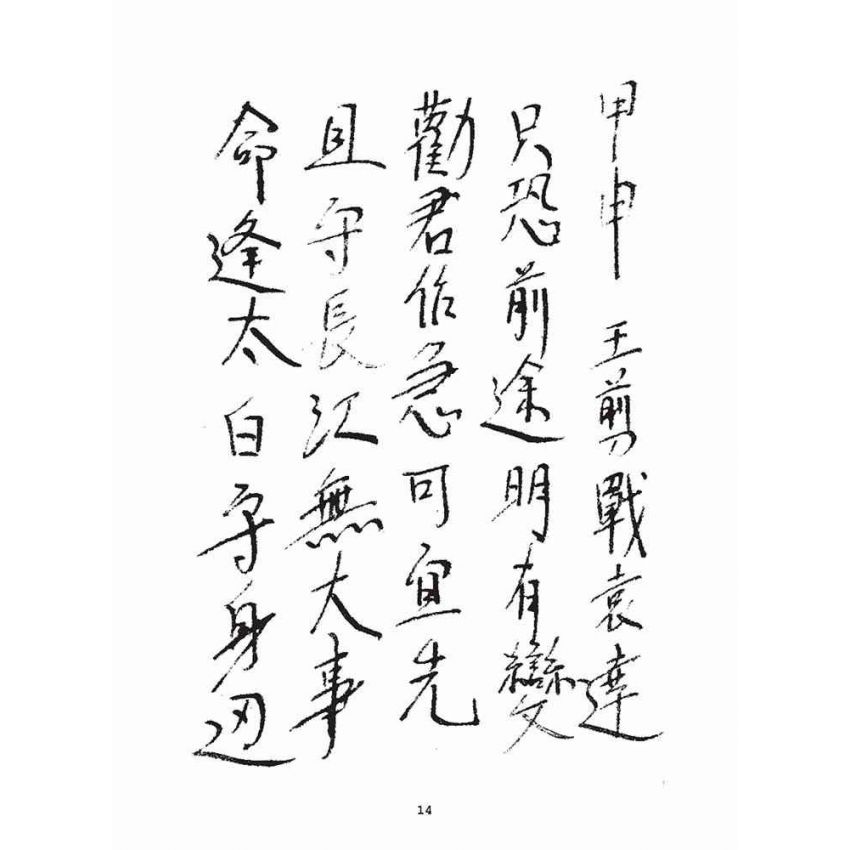 甲申 王剪戰袁達
只恐前途明有變
勸君作急可宜先
且守長江無大事
命逢太白守身边
14